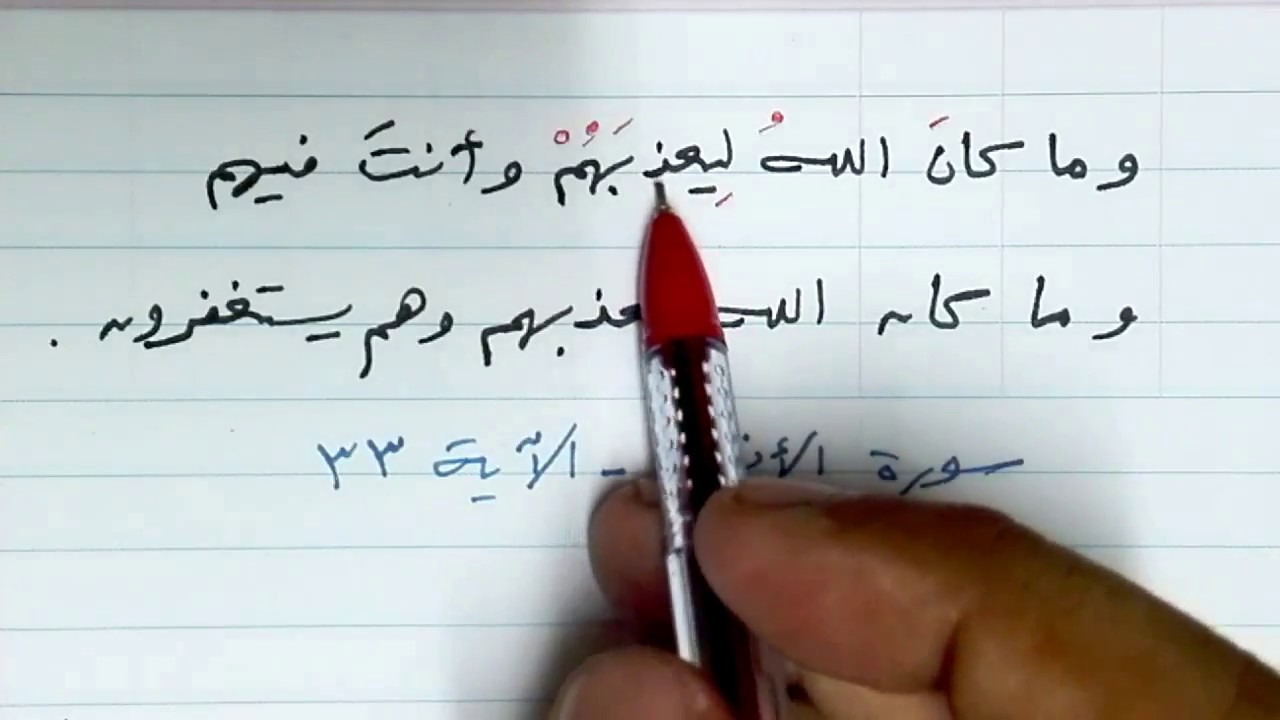 وما كانَ اللهُ لِيعذبَهُمْ وأنتَ فيهم
وما كان الله وهم يستغفرون .
سورة - الآية ٣٣